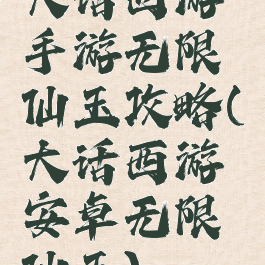 大话西游
手游无限
仙玉攻略(
大话西游
安卓无限
仙玉)